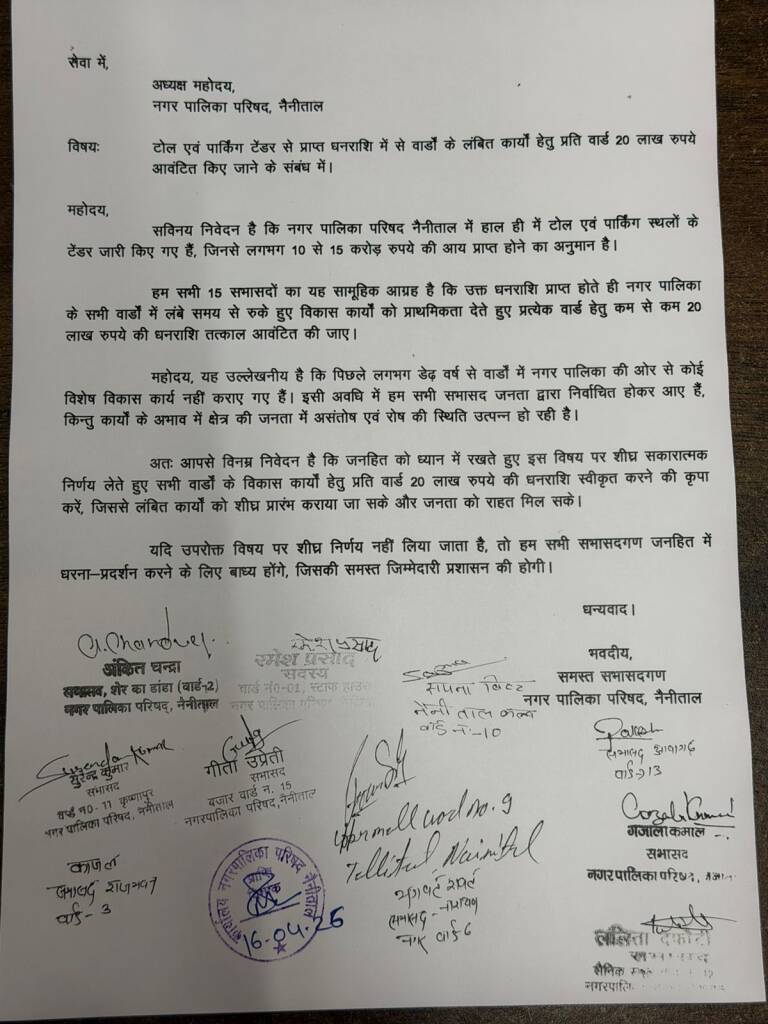 सेवा में,
अध्यक्ष महोदय,
नगर पालिका परिषद, नैनीताल
विषयः टोल एवं पार्किंग टेंडर से प्राप्त धनराशि में से वार्डों के लंबित कार्यों हेतु प्रति वार्ड 20 लाख रुपये
आवंटित किए जाने के संबंध में।
महोदय,
सविनय निवेदन है कि नगर पालिका परिषद नैनीताल में हाल ही में टोल एवं पार्किंग स्थलों के
टेंडर जारी किए गए हैं, जिनसे लगभग 10 से 15 करोड़ रुपये की आय प्राप्त होने का अनुमान है।
हम सभी 15 सभासदों का यह सामूहिक आग्रह है कि उक्त धनराशि प्राप्त होते ही नगर पालिका
के सभी वार्डों में लंबे समय से रुके हुए विकास कार्यों को प्राथमिकता देते हुए प्रत्येक वार्ड हेतु कम से कम 20
लाख रुपये की धनराशि तत्काल आवंटित की जाए।
महोदय, यह उल्लेखनीय है कि पिछले लगभग डेढ़ वर्ष से वार्डों में नगर पालिका की ओर से कोई
विशेष विकास कार्य नहीं कराए गए हैं। इसी अवधि में हम सभी सभासद जनता द्वारा निर्वाचित होकर आए हैं,
किन्तु कार्यों के अभाव में क्षेत्र की जनता में असंतोष एवं रोष की स्थिति उत्पन्न हो रही है।
अतः आपसे विनम्र निवेदन है कि जनहित को ध्यान में रखते हुए इस विषय पर शीघ्र सकारात्मक
निर्णय लेते हुए सभी वार्डों के विकास कार्यों हेतु प्रति वार्ड 20 लाख रुपये की धनराशि स्वीकृत करने की कृपा
करें, जिससे लंबित कार्यों को शीघ्र प्रारंभ कराया जा सके और जनता को राहत मिल सके।
यदि उपरोक्त विषय पर शीघ्र निर्णय नहीं लिया जाता है, तो हम सभी सभासदगण जनहित में
धरना–प्रदर्शन करने के लिए बाध्य होंगे, जिसकी समस्त जिम्मेदारी प्रशासन की होगी।
धन्यवाद।
भवदीय,
समस्त सभासदगण
नगर पालिका परिषद, नैनीताल
अंकित चन्द्रा
सभासद, शेर का डांडा (वार्ड-2)
नगर पालिका परिषद, नैनीताल
रमेश प्रसाद
रमेश प्रसाद
सदस्य
वार्ड नं0-01, स्टाफ हाउस
सपना बिष्ट
नैनीताल क्लब
वार्ड नं-10
सुरेन्द्र कुमार
सभासद
वार्ड न0-11 कृष्णापुर
नगर पालिका परिषद, नैनीताल
गीता उप्रेती
सभासद
बजार वार्ड न. 15
नगरपालिका परिषद, नैनीताल
सभासद आवागढ़
वार्ड-13
Upper mall ward no. 9
Tallital Nainital
गजाला कमाल
सभासद
नगरपालिका परिषद,
काजल
सभासद राजभवन
वार्ड - 3
कार्यालय नगरपालिका परिषद नैनीताल
16-04-26
सभासद - नारायण
नगर वार्ड-6
ललिता दफौटी
सैनिक
नगरपालि